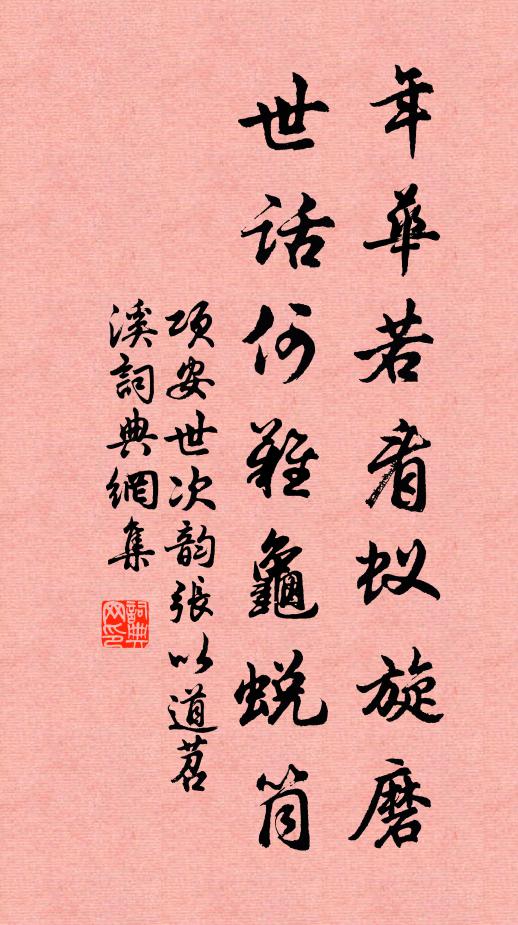 年華若看蚁旋磨
世话何難龜蜕筒
项安世次韵張以道苕
溪詞典網集
詞典网印